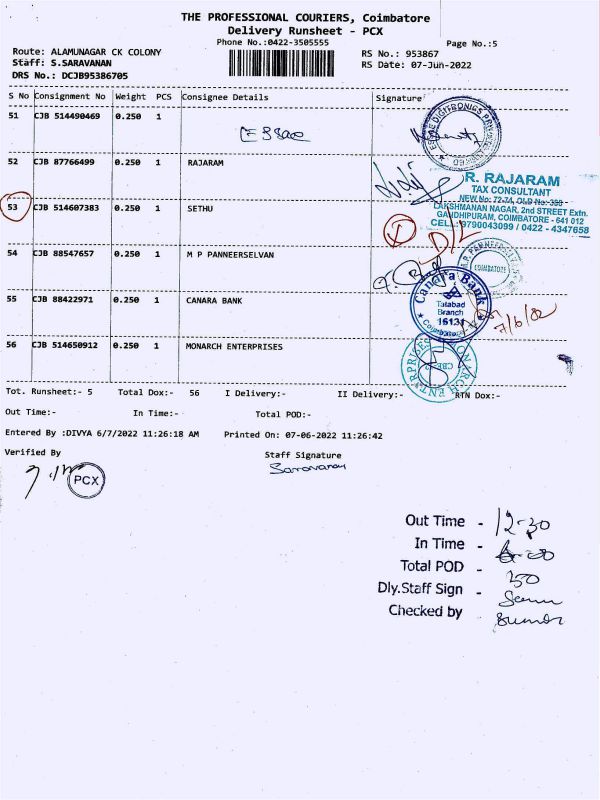 THE PROFESSIONAL COURIERS, Coimbatore
Delivery Runsheet - PCX
Phone No.:0422-3505555
Page No.:5
Route: ALAMUNAGAR CK COLONY
RS No.: 953867
Staff: S.SARAVANAN
RS Date: 07-Jun-2022
DRS No.: DCJB95386705
S No Consignment No Weight PCS Consignee Details Signature
51 CJB 514490469 0.250 1
52 CJB 87766499 0.250 1 RAJARAM
R. RAJARAM
TAX CONSULTANT
NEW No: 72-74, OLD No: 399
LAKSHMANAN NAGAR, 2nd STREET Extn.
GANDHIPURAM, COIMBATORE - 641 012
CELL: 9790043099 / 0422 - 4347658
53 CJB 514607383 0.250 1 SETHU
D/L
54 CJB 88547657 0.250 1 M P PANNEERSELVAN
COIMBATORE
55 CJB 88422971 0.250 1 CANARA BANK
Canara Bank
Tatabad
Branch
16131
Coimbatore
7/6/22
56 CJB 514650912 0.250 1 MONARCH ENTERPRISES
MONARCH ENTERPRISES
Tot. Runsheet:- 5 Total Dox:- 56 I Delivery:- II Delivery:- RTN Dox:-
Out Time:- In Time:- Total POD:-
Entered By :DIVYA 6/7/2022 11:26:18 AM Printed On: 07-06-2022 11:26:42
Verified By Staff Signature
PCX
Saravanan
Out Time - 12-30
In Time -
Total POD -
Dly.Staff Sign -
Checked by